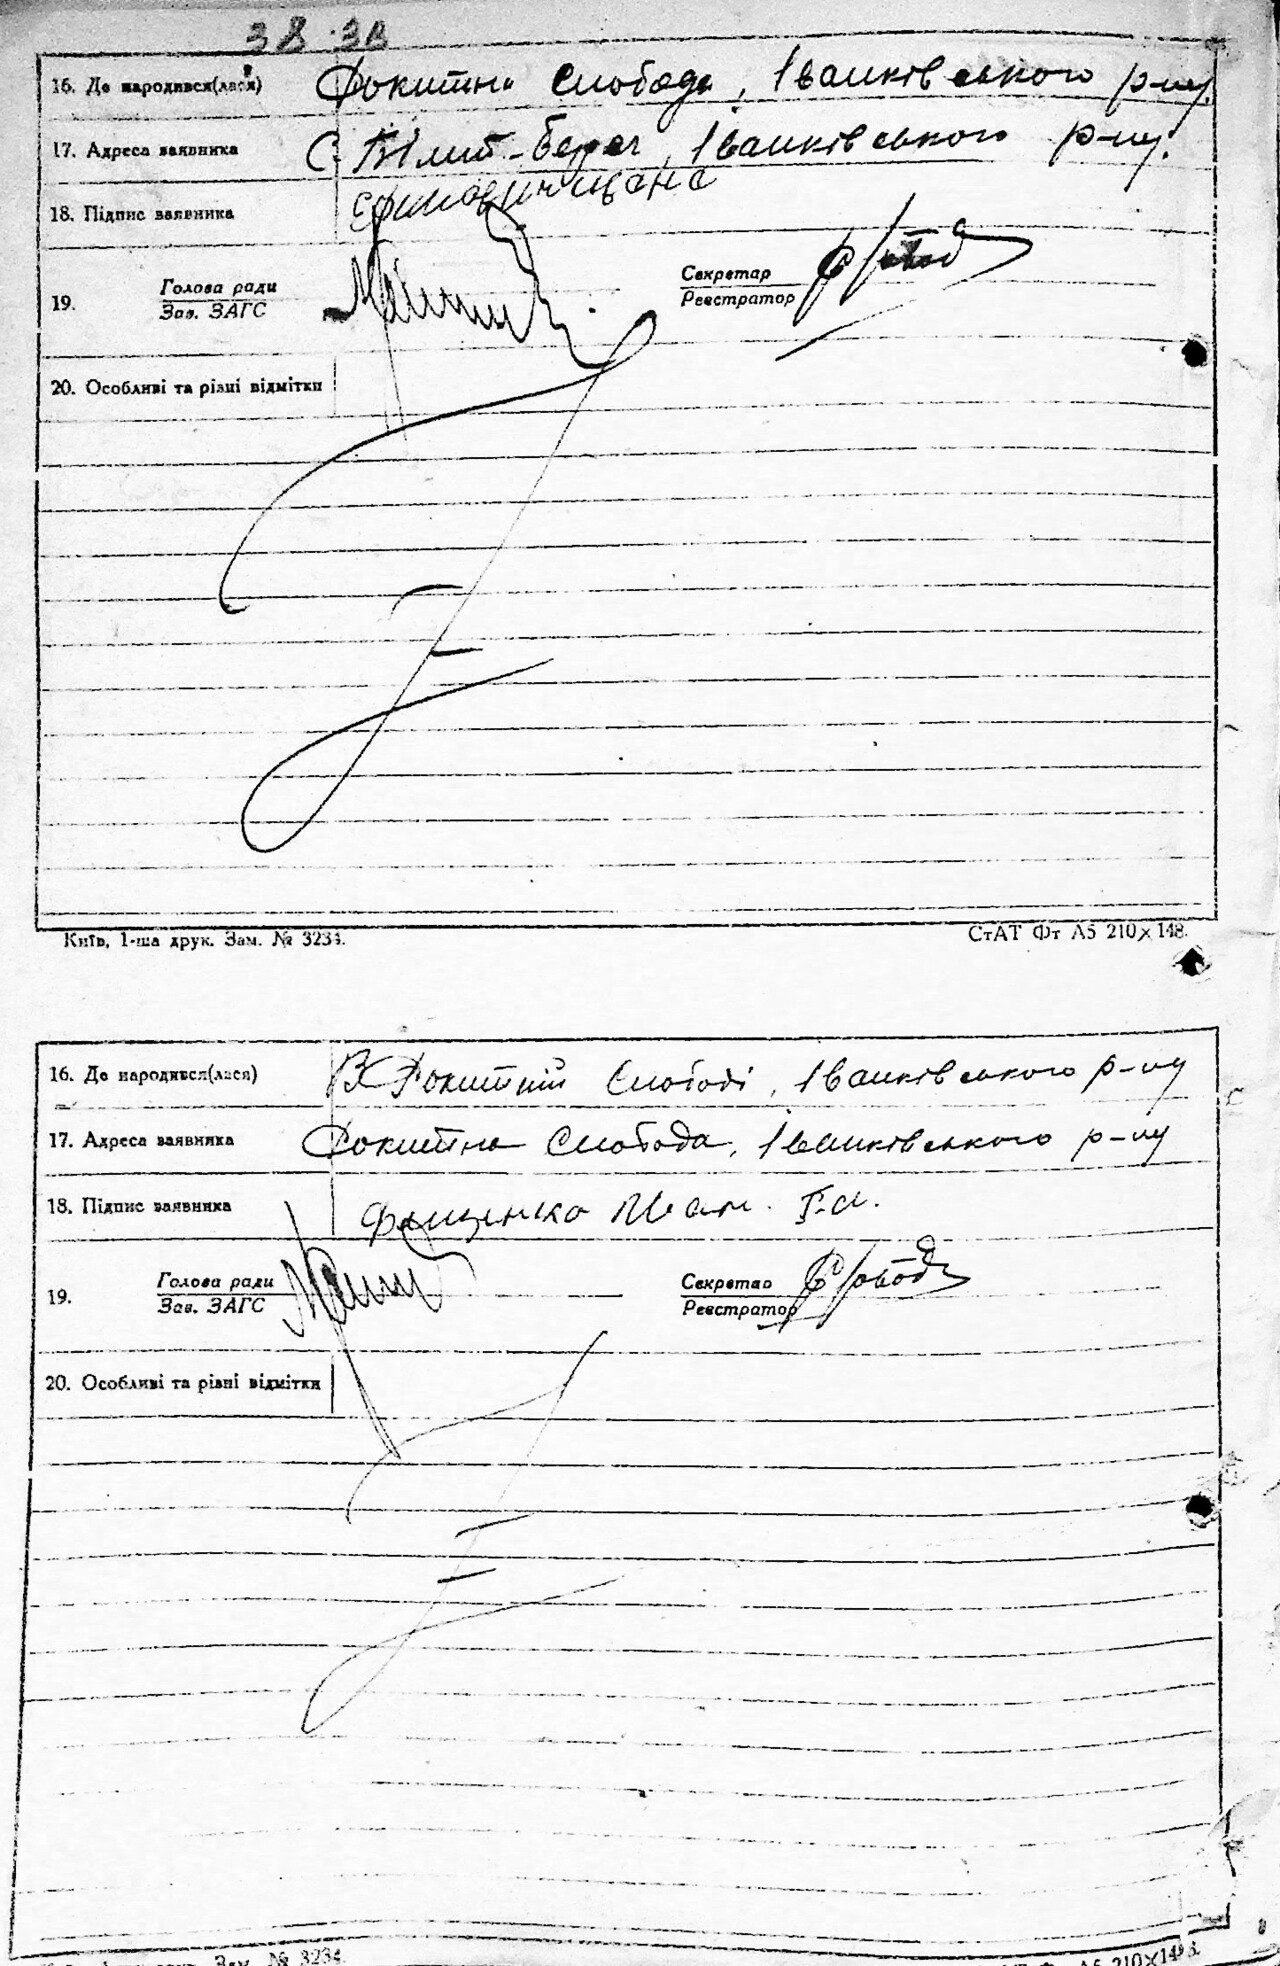 38 зв
16. Де народився(лася) Рокитна Слобода, Іванківського р-ну.
17. Адреса заявника С. Білий-Берег, Іванківського р-ну.
18. Підпис заявника
19. Голова ради Секретар
Зав. ЗАГС Реєстратор
20. Особливі та різні відмітки
Київ, 1-ша друк. Зам. № 3234. СтАТ Фт А5 210×148.
16. Де народився(лася) В Рокитній Слободі, Іванківського р-ну
17. Адреса заявника Рокитна Слобода, Іванківського р-ну
18. Підпис заявника
19. Голова ради Секретар
Зав. ЗАГС Реєстратор
20. Особливі та різні відмітки
друк. Зам. № 3234. Фт А5 210×148.